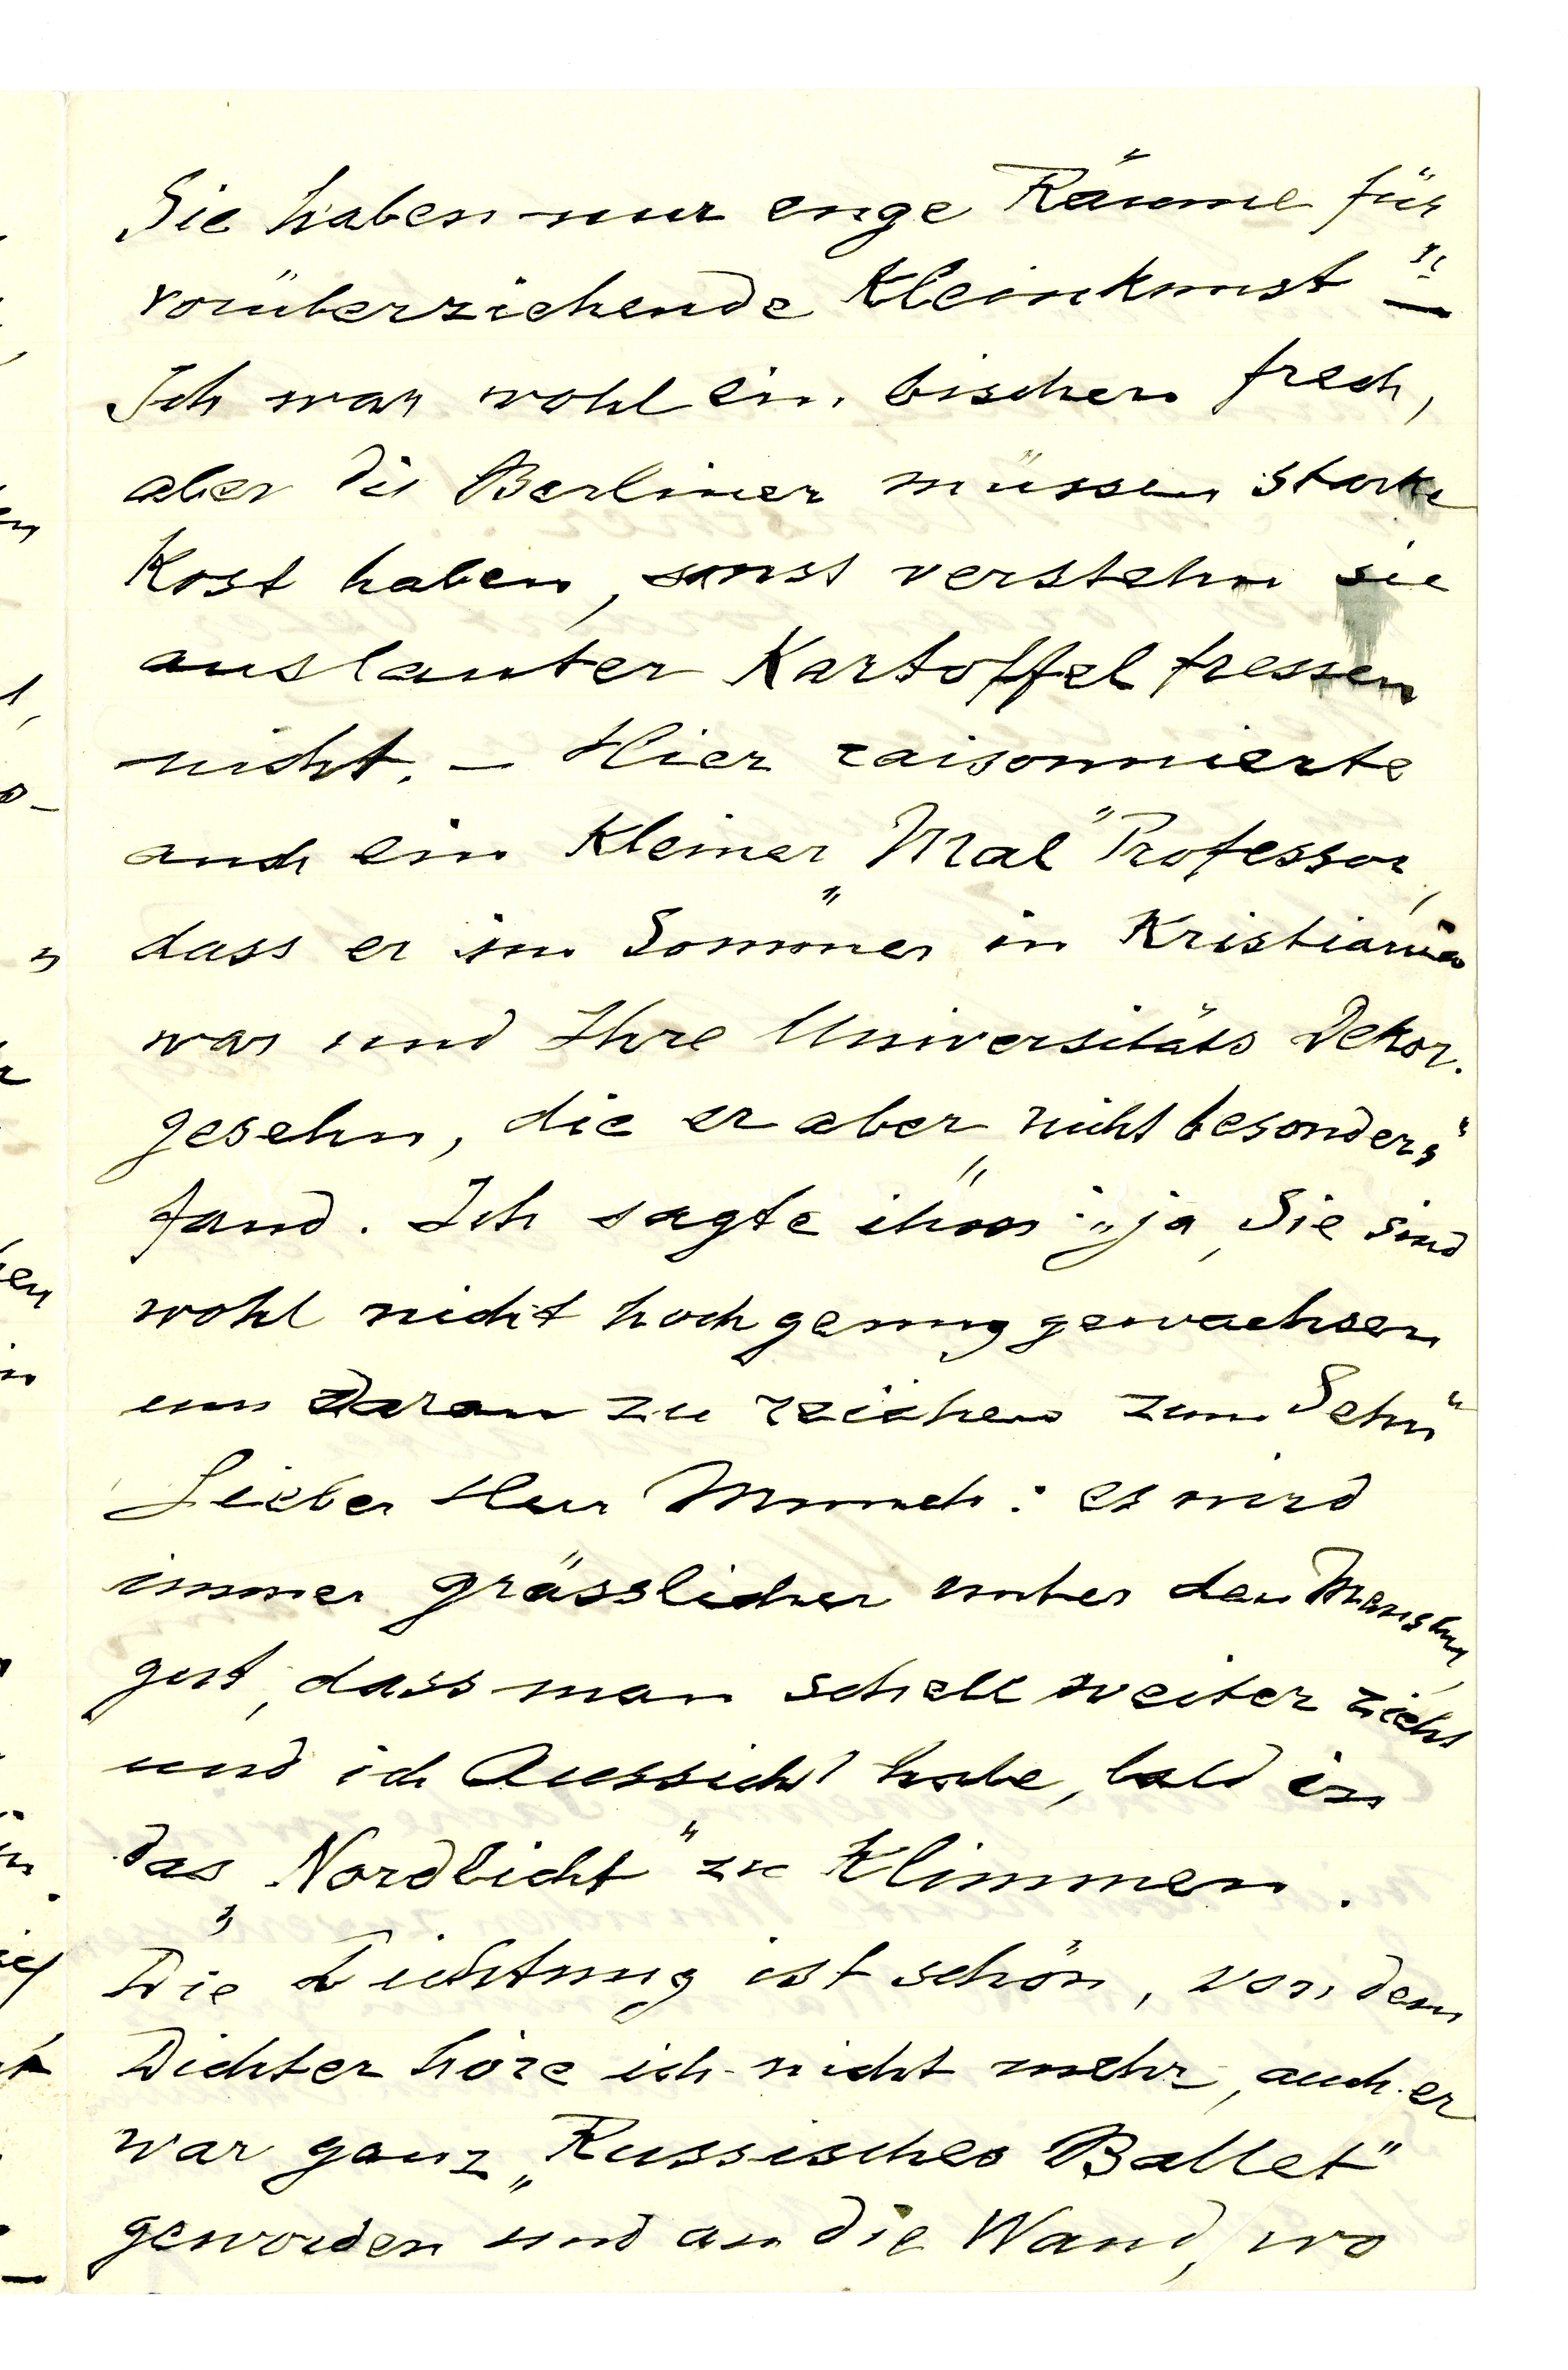 Sie haben nur enge Räume für
vorüberziehende Kleinkunst "
Ich war wohl ein bischen frech,
aber die Berliner müssen starke
Kost haben, sonst verstehn sie
aus lauter Kartoffel fressen
nicht. – Hier raisonnierte
auch ein Kleiner „Mal" Professor,
dass er im Sommer in Kristiania
war und Ihre Universitäts Dekor.
gesehn, die er aber „nicht besonders"
fand. Ich sagte ihm: „ja, Sie sind
wohl nicht hoch genug gewachsen
um daran zu reichen zum Sehn"
Lieber Herr Munch: es wird
immer grässlicher unter den Menschen,
gut, dass man schell weiter zieht
und ich Aussicht habe, bald in
das „Nordlicht" zu Klimmen.
Die Dichtung ist schön, von dem
Dichter höre ich nicht mehr, auch er
war ganz „Russisches Ballet"
geworden und an die Wand, wo